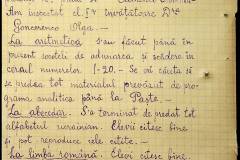 Am inspectat cl. I-a învățătoare D-ra
Goncearenco Olga.
La aritmetica s'au făcut până în
prezent socoteli de adunarea și scădere în
cercul numerelor 1-20. Se va căuta să
se predea tot materialul prevăzut de pro-
grama analitică până la Paște.
La abecedar S'a terminat de predat tot
alfabetul ucrainian. Elevii citesc bine
și pot reproduce cele citite.
La limba română. Elevii citesc bine